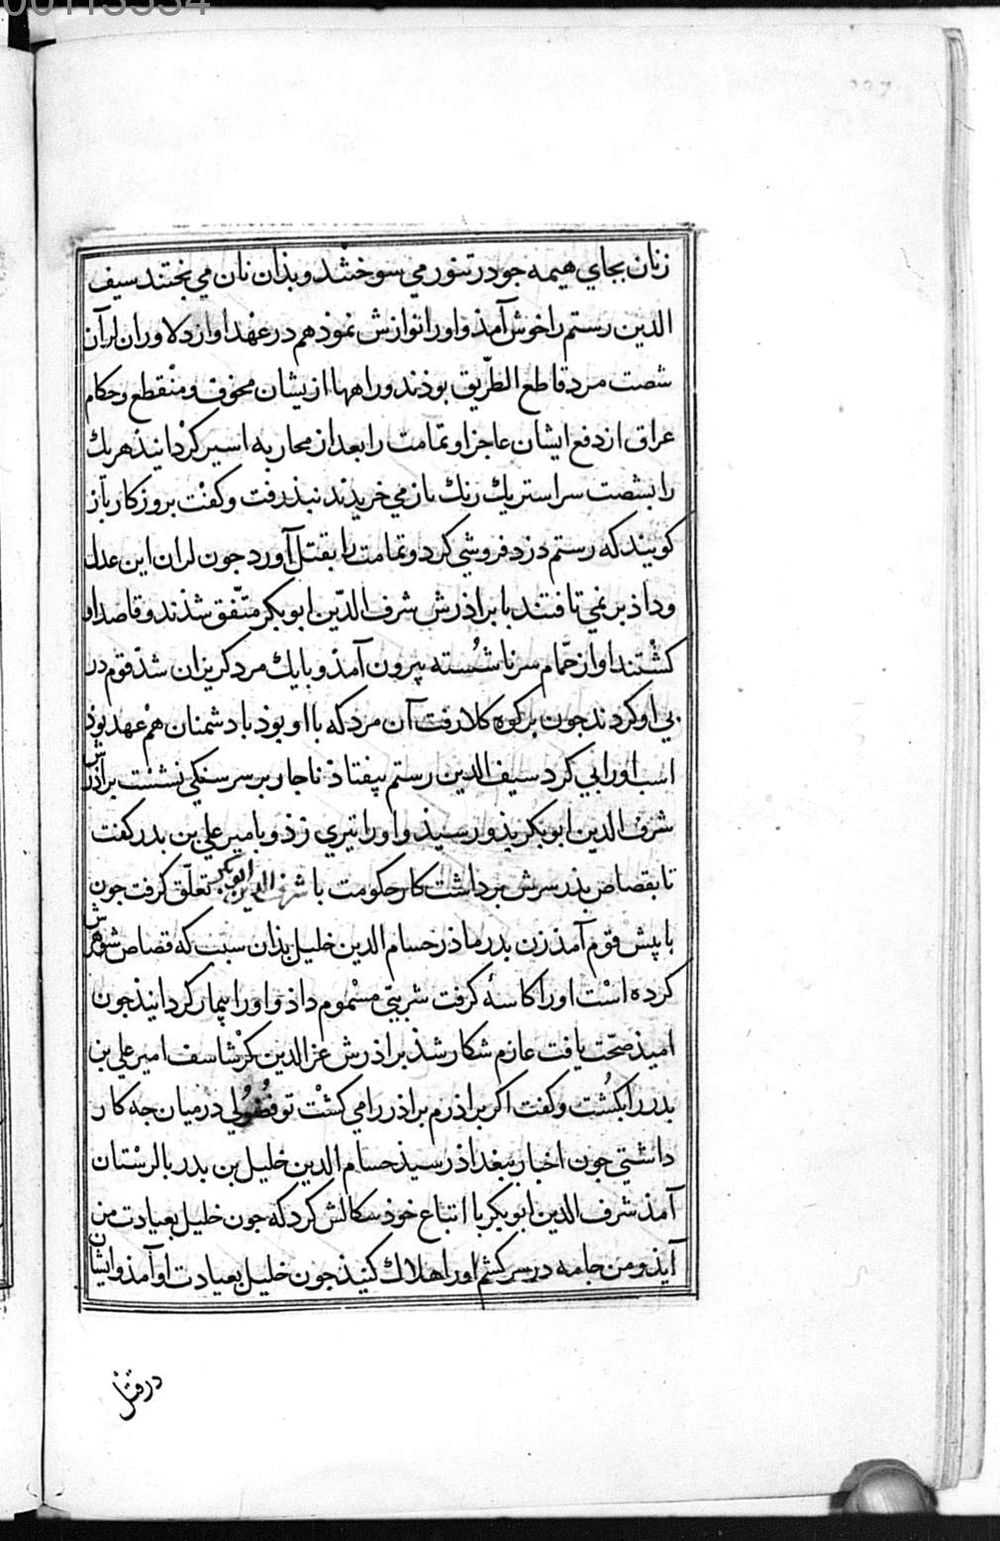 00113534
زنان بجاي هيمه جو در تنور مي سوختند و بذان نان مي بختند سيف
الدين رستم را خوش آمذ و او را نوازش نموذ هم در عهد او از دلاوران لران
شصت مرد قاطع الطّريق بوذند و راهها از يشان مخوف و منقطع و حكام
عراق از دفع ايشان عاجز او تمامت را بعد از محاربه اسير كردانيذ هر يك
را بشصت سر استر يك رنك باز مي خريدند نبذرفت و كفت بروزكار باز
كويند كه رستم دزد فروشي كرد و تمامت را بقتل آورد جون لران اين عدل
و داذ بر نمي تافتند با براذرش شرف الدّين ابوبكر متّفق شذند و قاصد او
كشتند او از حمّام سر ناشُسته بيرون آمذ و با يك مرد كريزان شذ قوم در
بي او كردند جون بر كوه كلا رفت آن مرد كه با او بوذ با دشمنان هم عهد بوذ
اسب او را بي كرد سيف الدين رستم بيفتاذ ناجار بر سر سنكي نشست براذرش
شرف الدين ابوبكر بذو رسيذ و او را تيري زذ و با مير علي بن بدر كفت
تا بقصاص بذر سرش برداشت كار حكومت با شرف الدين ابوبكر تعلّق كرفت جون
با پيش قوم آمذ زن بدر ماذر حسام الدين خليل بذان سبب كه قصاص شوهرش
كرده است او را كاسهٔ كرفت شربتي مسموم داذ و او را بيمار كردانيذ جون
اميذ صحّت يافت عازم شكار شذ براذرش عز الدين كرشاسف امير علي بن
بدر را بكُشت و كفت اكر براذرم براذر را مي كشت تو فُضُولي در ميان جه كار
داشتي جون اخبار ببغداذ رسيذ حسام الدين خليل بن بدر با لرستان
آمذ شرف الدين ابوبكر با اتباع خوذ سكالش كرد كه جون خليل بعيادت من
آيذ و من جامه در سر كشم او را هلاك كنيذ جون خليل بعيادت او آمذ و ايشان
در قتل